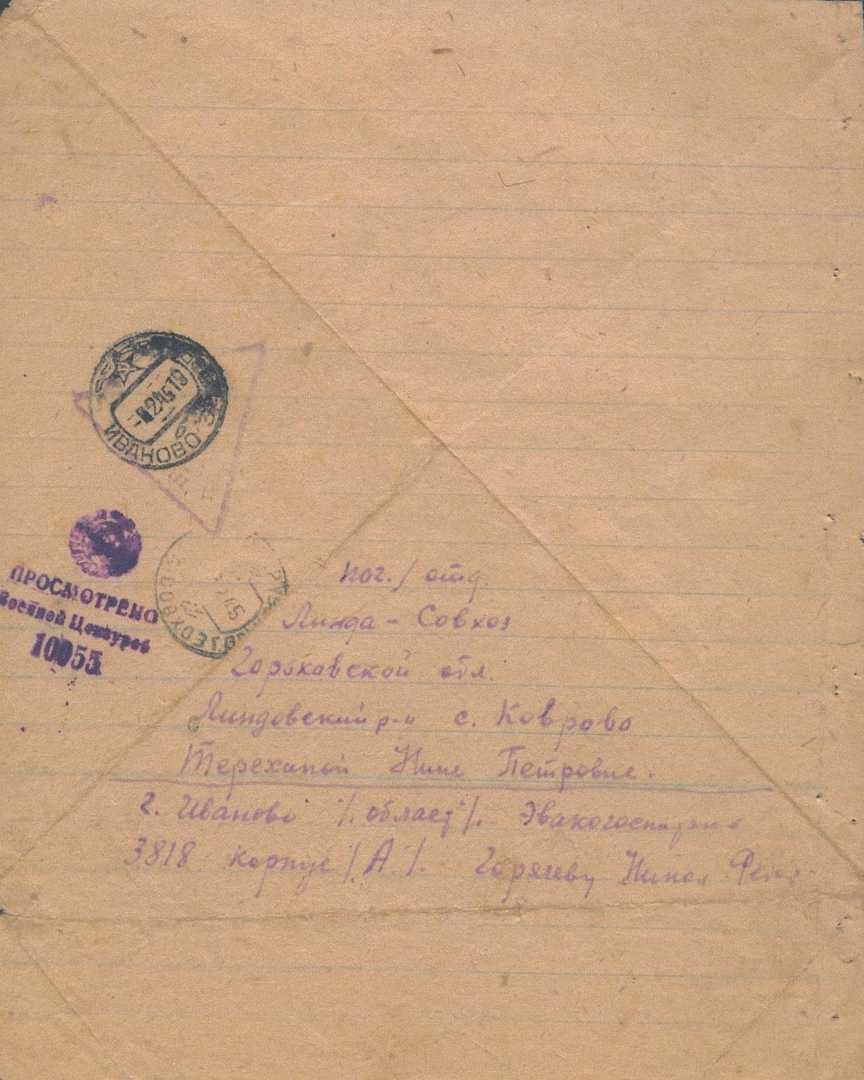 ИВАНОВО
ПРОСМОТРЕНО
Военной Цензурой
10055
поч./отд.
Линда - Совхоз
Горьковской обл.
Линдовский р-н с. Коврово
Терехиной Нине Петровне.
г. Иваново /. област /. Эвакогоспиталь
3818 корпус /А/. Горячеву